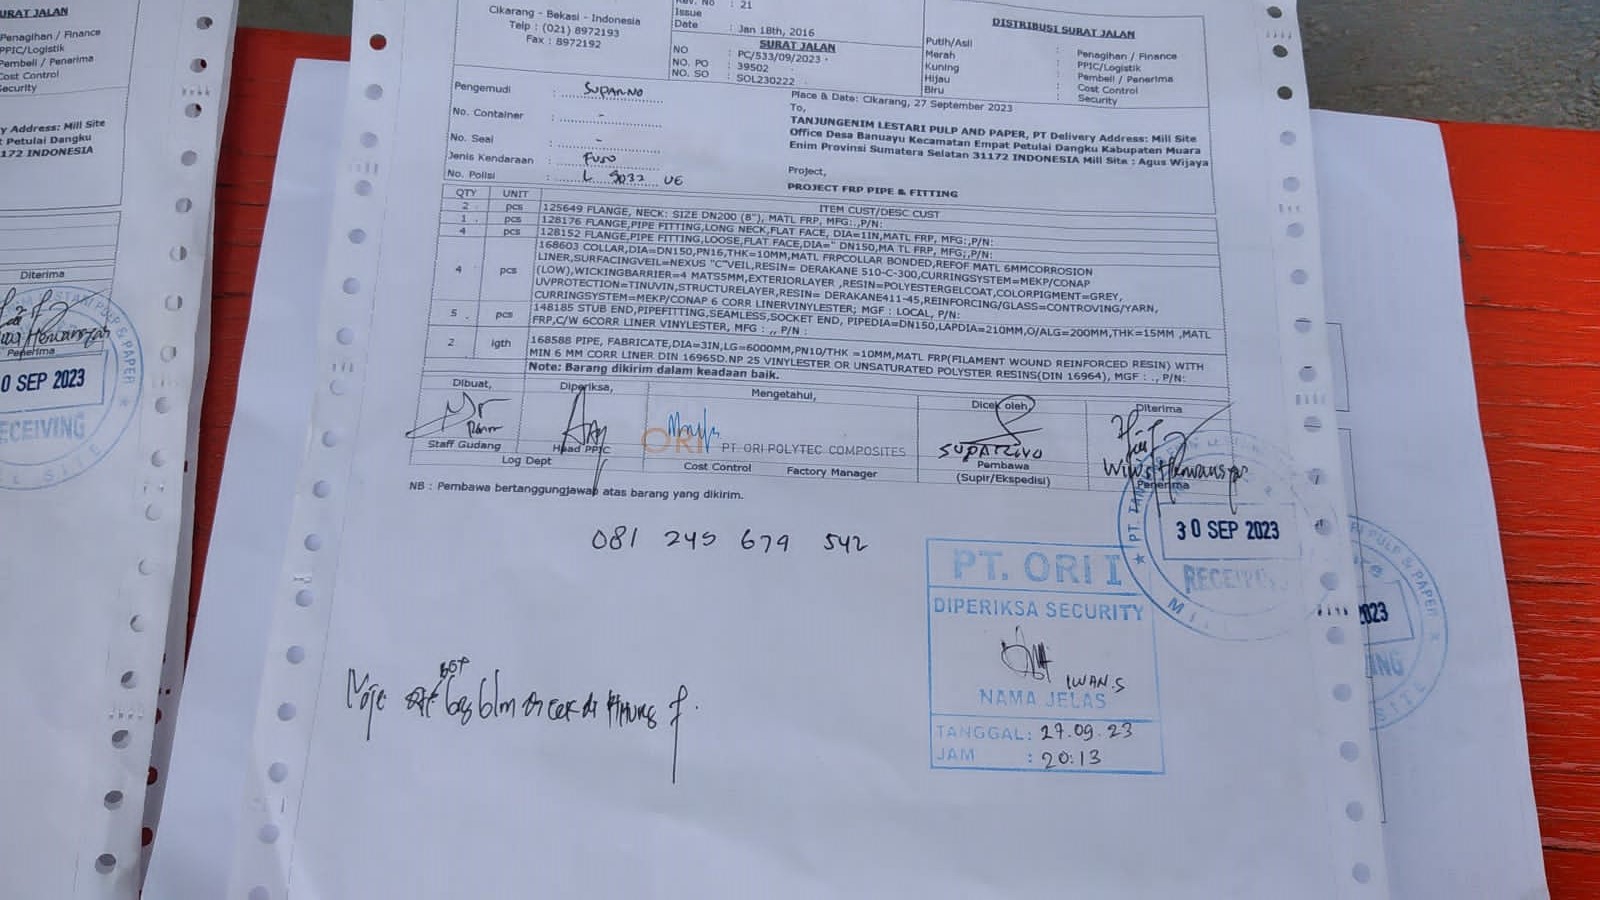 URAT JALAN
Penagihan / Finance
PPIC/Logistik
Pembeli / Penerima
Cost Control
Security
y Address: Mill Site
t Petulai Dangku
172 INDONESIA
Diterima
Penerima
0 SEP 2023
ECEIVING
Cikarang - Bekasi - Indonesia
Telp : (021) 8972193
Fax : 8972192
Rev. No : 21
Issue
Date : Jan 18th, 2016
SURAT JALAN
NO : PC/533/09/2023
NO. PO : 39502
NO. SO : SOL230222
DISTRIBUSI SURAT JALAN
Putih/Asli : Penagihan / Finance
Merah : PPIC/Logistik
Kuning : Pembeli / Penerima
Hijau : Cost Control
Biru : Security
Pengemudi : SUPARNO
No. Container : -
No. Seal : -
Jenis Kendaraan : FUSO
No. Polisi : L 9032 UE
Place & Date: Cikarang, 27 September 2023
To,
TANJUNGENIM LESTARI PULP AND PAPER, PT Delivery Address: Mill Site
Office Desa Banuayu Kecamatan Empat Petulai Dangku Kabupaten Muara
Enim Provinsi Sumatera Selatan 31172 INDONESIA Mill Site : Agus Wijaya
Project,
PROJECT FRP PIPE & FITTING
QTY UNIT ITEM CUST/DESC CUST
2 pcs 125649 FLANGE, NECK: SIZE DN200 (8"), MATL FRP, MFG:,P/N:
1 pcs 128176 FLANGE,PIPE FITTING,LONG NECK,FLAT FACE, DIA=1IN,MATL FRP, MFG:,P/N:
4 pcs 128152 FLANGE,PIPE FITTING,LOOSE,FLAT FACE,DIA=" DN150,MA TL FRP, MFG;,P/N:
4 pcs 168603 COLLAR,DIA=DN150,PN16,THK=10MM,MATL FRPCOLLAR BONDED,REFOF MATL 6MMCORROSION
LINER,SURFACINGVEIL=NEXUS "C"VEIL,RESIN= DERAKANE 510-C-300,CURRINGSYSTEM=MEKP/CONAP
(LOW),WICKINGBARRIER=4 MATS5MM,EXTERIORLAYER ,RESIN=POLYESTERGELCOAT,COLORPIGMENT=GREY,
UVPROTECTION=TINUVIN,STRUCTURELAYER,RESIN= DERAKANE411-45,REINFORCING/GLASS=CONTROVING/YARN,
CURRINGSYSTEM=MEKP/CONAP 6 CORR LINERVINYLESTER; MGF : LOCAL, P/N:
5 pcs 148185 STUB END,PIPEFITTING,SEAMLESS,SOCKET END, PIPEDIA=DN150,LAPDIA=210MM,O/ALG=200MM,THK=15MM ,MATL
FRP,C/W 6CORR LINER VINYLESTER, MFG : ,, P/N :
2 lgth 168588 PIPE, FABRICATE,DIA=3IN,LG=6000MM,PN10/THK =10MM,MATL FRP(FILAMENT WOUND REINFORCED RESIN) WITH
MIN 6 MM CORR LINER DIN 16965D.NP 25 VINYLESTER OR UNSATURATED POLYSTER RESINS(DIN 16964), MGF : ., P/N:
Note: Barang dikirim dalam keadaan baik.
Dibuat, Diperiksa, Mengetahui, Dicek oleh, Diterima
ORI PT ORI POLYTEC COMPOSITES
SUPARNO
Staff Gudang Head PPIC Cost Control Factory Manager Pembawa Penerima
Log Dept (Supir/Ekspedisi)
NB : Pembawa bertanggungjawab atas barang yang dikirim.
081 245 679 542
30 SEP 2023
RECEIVING
PT. ORI I
DIPERIKSA SECURITY
IWAN.S
NAMA JELAS
TANGGAL: 27.09.23
JAM : 20:13
2023
PULP & PAPER